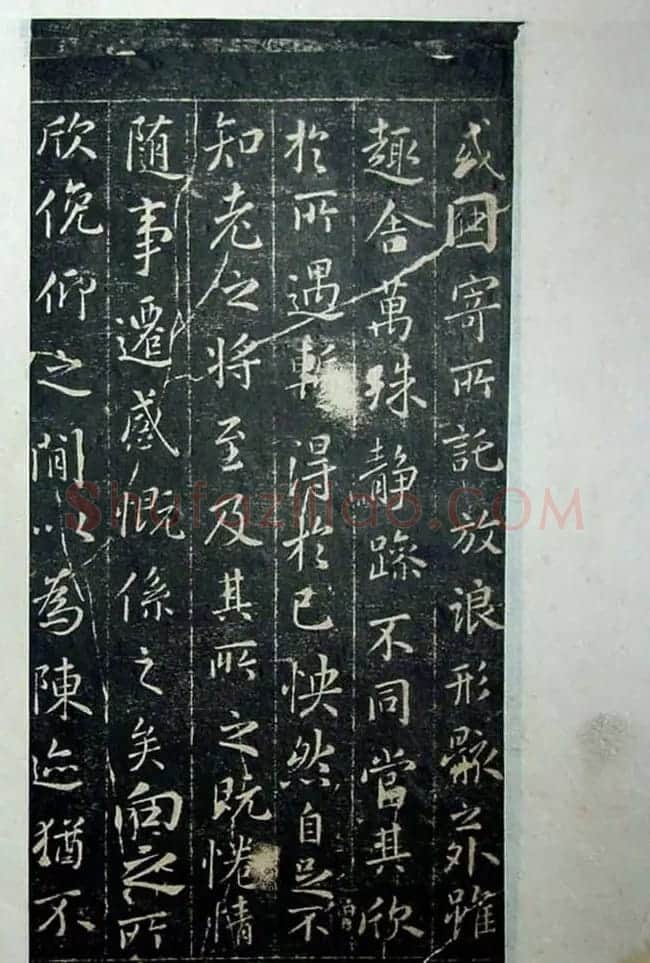 或因寄所託放浪形骸之外雖
趣舍萬殊静躁不同當其欣
於所遇暫得於己怏然自足不
僧
知老之將至及其所之既惓情
隨事遷感慨係之矣向之所
欣俛仰之閒以為陳迹猶不
Shufaziliao.COM